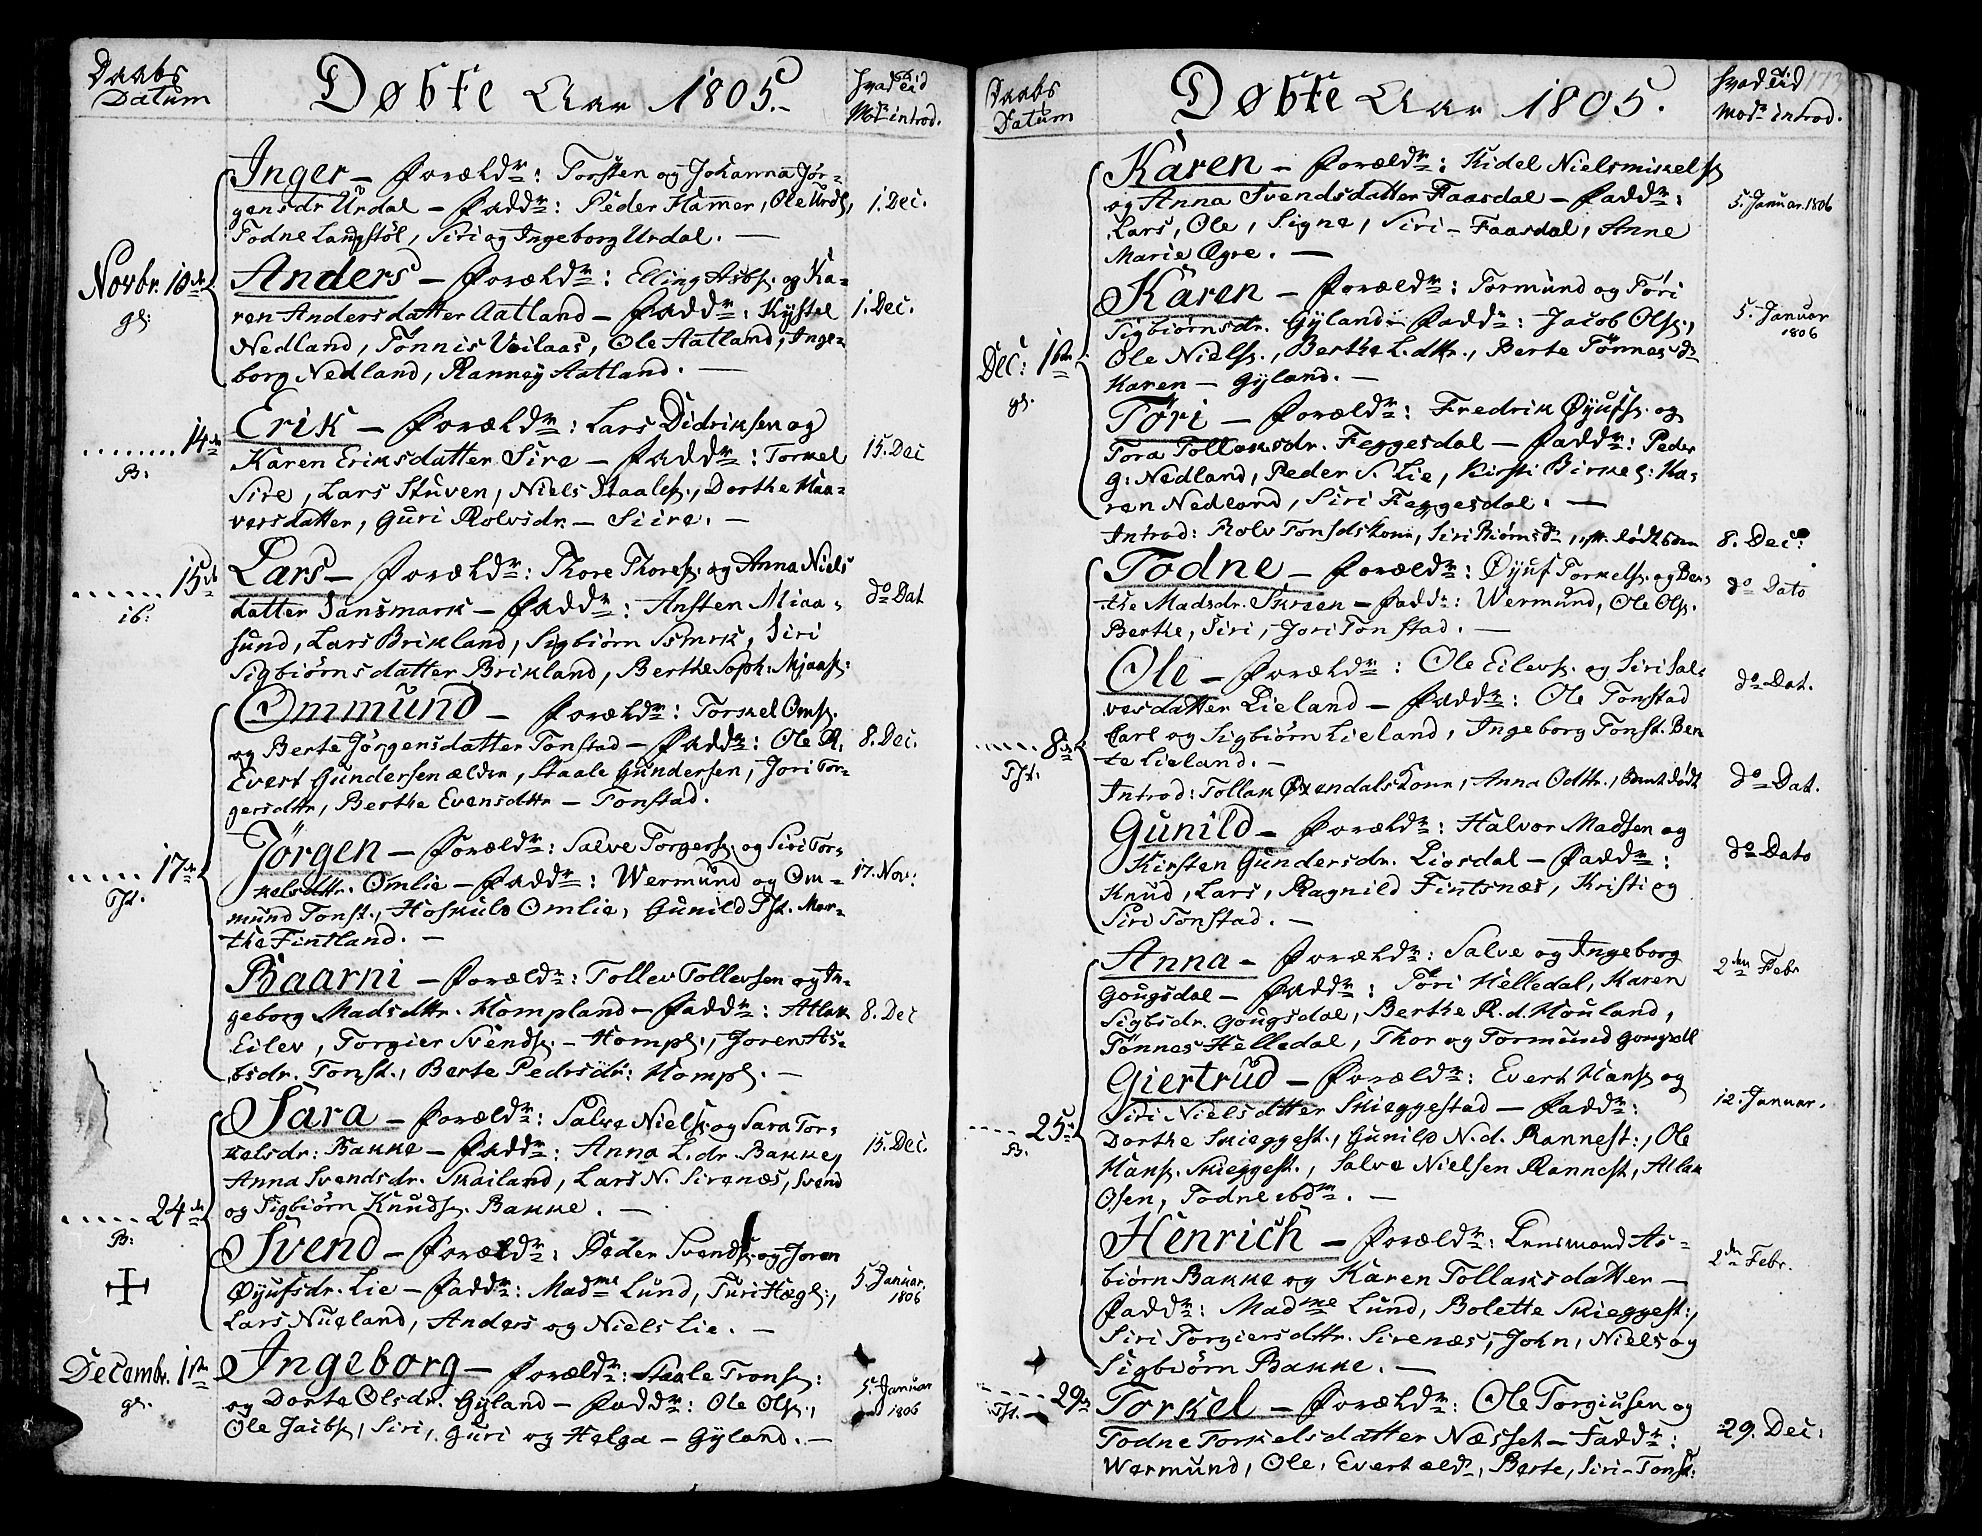 Daabs
Datum
Døbte Aar 1805.
Hvad Tid
Modr introd.
Inger — Foræld: Torsten og Johanna Jør-
gensdr Urdal — Fadd: Peder Hamer, Ole Urdl,
Todne Langstøl, Siri og Ingeborg Urdal. —
1. Dec.
Novbr. 10
gl:
Anders — Foræld: Elling Asbs. og Ka-
ren Andersdatter Aatland — Fadd: Kystel
Nedland, Tønnis Veilaas, Ole Aatland, Inge-
borg Nedland, Ranney Aatland. —
1. Dec.
14
B:
Erik — Foræld: Lars Didriksen og
Karen Eriksdatter Sire — Fadd: Torkel
Sire, Lars Stuven, Niels Staales., Dorthe Haa-
versdatter, Guri Rolvsdr. — Siire. —
15. Dec
15
ib:
Lars — Foræld: Thore Thores. og Anna Niels
datter Sansmark — Fadd: Ansten Miaa-
sund, Lars Brikland, Sigbiørn Ssmrk, Siri
Sigbiørnsdatter Brikland, Berthe Soph: Mjaas:
do Dat
Ommund — Foræld: Torkel Oms.
og Berte Jørgensdatter Tonstad — Fadd: Ole R.
Evert Gundersen ælder, Staale Gundersen, Jori Tor-
gersdttr, Berthe Evensdttr — Tonstad.
8. Dec.
17
Tst.
Jørgen — Foræld: Salve Torgers. og Siri Tor-
kelsdttr. Omlie — Fadd: Wermund og Om-
mund Tonst., Hoskuld Omlie, Gunild Tst. Mar-
the Fintland. —
17. Nov:
Baarni — Foræld: Tollev Tollevsen og In-
geborg Madsdttr. Hompland — Fadd: Atlak
Eilev, Torgier Svends. — Hompl., Joren As-
bsdr. Tonst., Berte Pedrsdr: Hompl. —
8. Dec
Sara — Foræld: Salve Niels. og Sara Tor-
kelsdr: Bakke — Fadd: Anna L. dr Bakke,
Anna Svendsdr. Skailand, Lars N. Sirenæs, Svend
og Sigbiørn Knuds. Bakke. —
15. Dec.
24
B:
Svend — Foræld: Peder Svends. og Joren
Øyufsdr. Lie — Fadd: Madme Lund, Turi Hægl.,
Lars Nueland, Anders og Niels Lie. —
5. Januar.
1806
Decembr. 1ste
gl.
Ingeborg — Foræld: Staale Trons:
og Dorte Olsdr. Gyland — Fadd: Ole Ols.,
Ole Jacibs, Siri, Guri og Helga — Gyland. —
5. Januar
1806
Daabs
Datum
Døbte Aar 1805.
Hvad Tid
Modr introd.
173
Karen — Foræld: Kidel Nielsmikels
og Anna Svendsdatter Faasdal — Fadd:
Lars, Ole, Signe, Siri — Faasdal, Anne
Marie Øgre. —
5. Januar. 1806
Karen — Foræld: Tormund og Tøri
Sigbiørnsdr. Gyland — Fadd: Jacob Ols.,
Ole Niels., Berthe L. dttr., Berte Tønnesdr
Karen — Gyland. —
5. Januar
1806
Dec: 1ste
gl.
Tøri — Foræld: Fredrik Øyufs. og
Tora Tollaksdr. Feggesdal — Fadd: Peder
G: Nedland, Peder S. Lie, Kirsti Birkel: Ka-
ren Nedland, Siri Feggesdal. —
Introd: Rolv Tonsdskone, Siri Biørnsdr, dødt barn
8. Dec:
Todne — Foræld: Øyuf Torkels. og Ber-
the Madsdr. Skreen — Fadd: Wermund, Ole Ols.
Berthe, Siri, Jori Tonstad. —
do Dato
Ole — Foræld: Ole Eilevs. og Siri Sal-
vesdatter Lieland — Fadd: Ole Tonstad
Carl og Sigbiørn Lieland, Ingeborg Tonst. Ben
te Lieland. —
do Dat.
8
Tst.
Introd: Tollak Øxendals Kone, Anna Odttr., Barnet dødt
do Dat.
Gunild — Foræld: Halvor Madsen og
Kirsten Gundersdr. Liosdal — Fadd:
Knud, Lars, Ragnild Fintsnæs, Kristi og
Siri Tonstad. —
do Dato
Anna — Foræld: Salve og Ingeborg
Gougsdal — Fadd: Tøri Helledal, Karen
Sigbsdr. Gougsdal, Berthe R. d. Houland,
Tønnes Helledal, Thor og Tormund Gougsdl
2den Febr
Giertrud — Foræld: Evert Hans. og
Siri Nielsdtter Skieggestad — Fadd:
Dorthe Skieggest., Gunild N. d. Rannest:, Ole
Hans. Skieggest., Salve Nielsen Rannest, Atlak
Osen, Todne ibdm. —
12. Januar.
25
B.
Henrich — Foræld: Lensmand As-
biørn Bakke og Karen Tollaksdatter —
Fadd: Madme Lund, Bolette Skieggest.,
Siri Torgiersdttr. Sirenæs, John, Niels og
Sigbiørn Bakke. —
2den Febr.
29
Tst.
Torkel — Foræld: Ole Torgiusen og
Todne Torkelsdatter Næsset — Fadd:
Wermund, Ole, Evert æld, Berte, Siri — Tonst:
29. Dec: